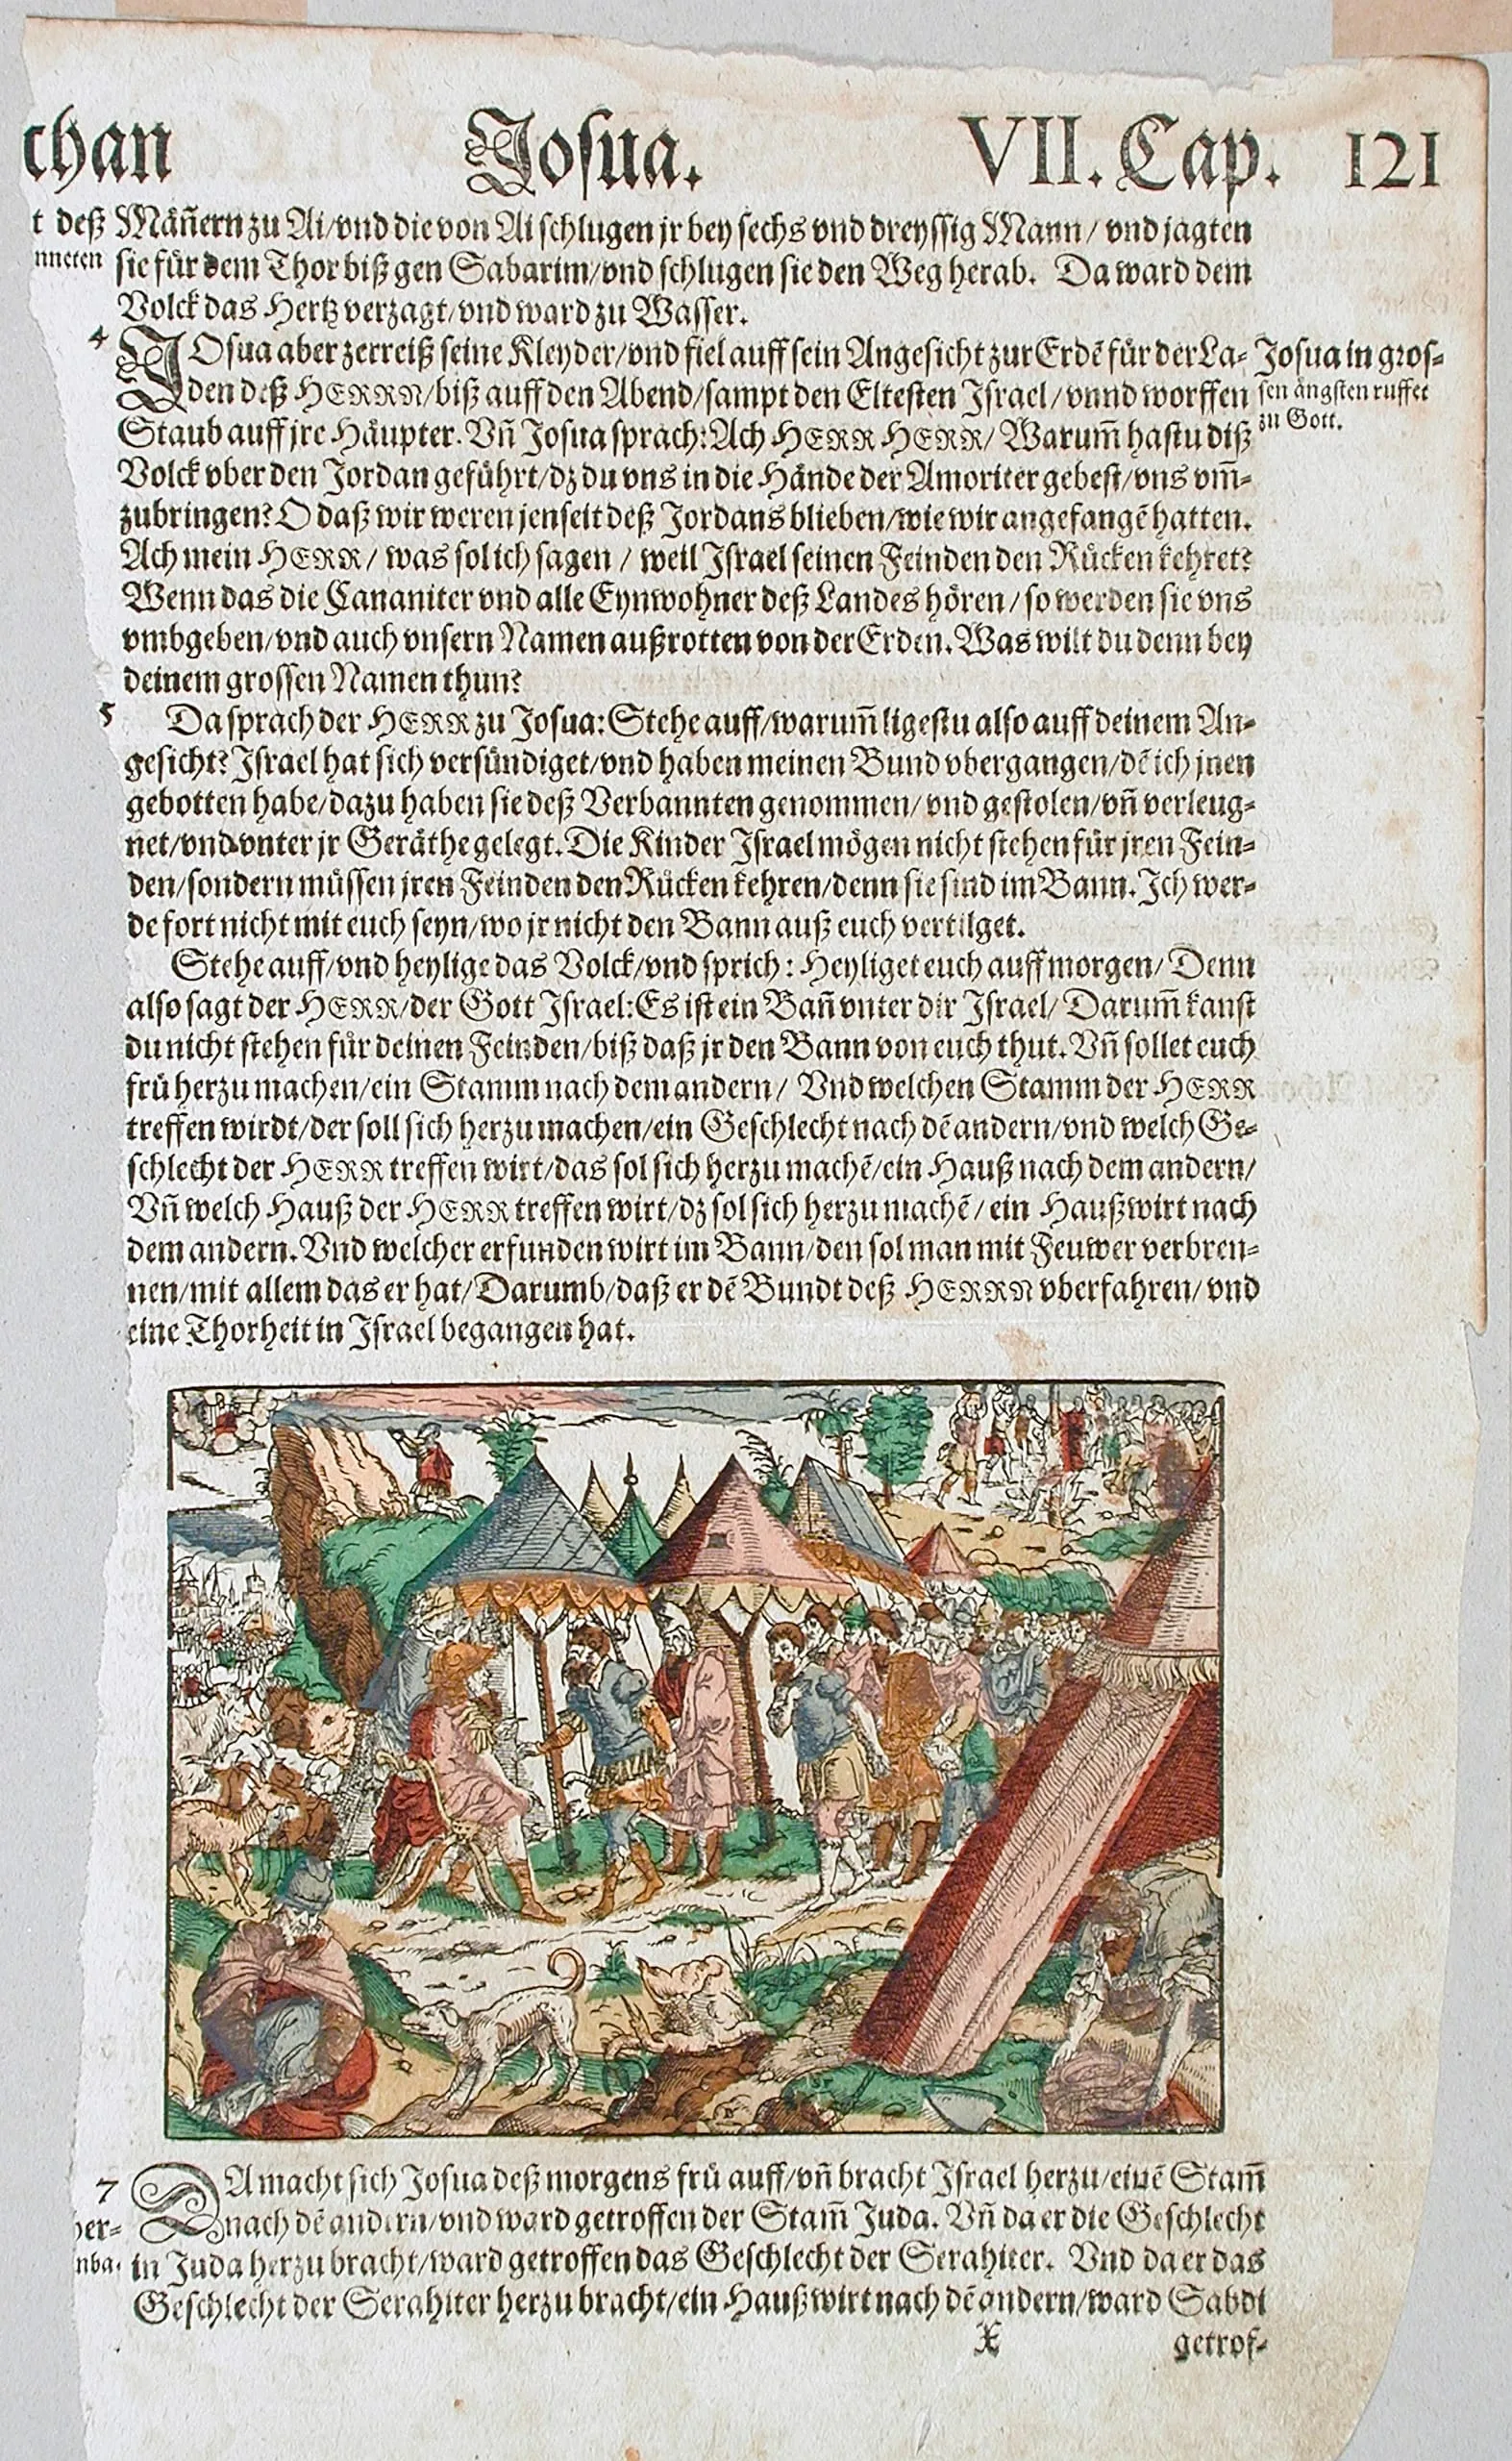 chan Josua. VII. Cap. 121
t deß Mäñern zu Ai/vnd die von Ai schlugen jr bey sechs vnd dreyssig Mann/ vnd jagten
nneten sie für dem Thor biß gen Sabarim/vnd schlugen sie den Weg herab. Da ward dem
Volck das Hertz verzagt/vnd ward zu Wasser.
4 JOsua aber zerreiß seine Kleyder/vnd fiel auff sein Angesicht zur Erdẽ für der La-
den deß HERRN/biß auff den Abend/sampt den Eltesten Israel/vnnd worffen
Staub auff jre Häupter. Vñ Josua sprach: Ach HERR HERR/ Warum̃ hastu diß
Volck vber den Jordan geführt/dz du vns in die Hände der Amoriter gebest/vns vm̃-
zubringen? O daß wir weren jenseit deß Jordans blieben/wie wir angefangẽ hatten.
Ach mein HERR/ was sol ich sagen / weil Israel seinen Feinden den Rücken kehret?
Wenn das die Cananiter vnd alle Eynwohner deß Landes hören/so werden sie vns
vmbgeben/vnd auch vnsern Namen außrotten von der Erden. Was wilt du denn bey
deinem grossen Namen thun?
Josua in gros-
sen ängsten ruffet
zu Gott.
5 Da sprach der HERR zu Josua: Stehe auff/warum̃ ligestu also auff deinem An-
gesicht? Israel hat sich versündiget/vnd haben meinen Bund vbergangen/dẽ ich jnen
gebotten habe/dazu haben sie deß Verbannten genommen/vnd gestolen/vñ verleug-
net/vnd vnter jr Geräthe gelegt. Die Kinder Israel mögen nicht stehen für jren Fein-
den/sondern müssen jren Feinden den Rücken kehren/denn sie sind im Bann. Ich wer-
de fort nicht mit euch seyn/wo jr nicht den Bann auß euch vertilget.
Stehe auff/vnd heylige das Volck/vnd sprich: Heyliget euch auff morgen/ Denn
also sagt der HERR/der Gott Israel: Es ist ein Bañ vnter dir Israel/ Darum̃ kanst
du nicht stehen für deinen Feinden/biß daß jr den Bann von euch thut. Vñ sollet euch
frü herzu machen/ein Stamm nach dem andern/ Vnd welchen Stamm der HERR
treffen wirdt/der soll sich herzu machen/ein Geschlecht nach dẽ andern/vnd welch Ge-
schlecht der HERR treffen wirt/das sol sich herzu machẽ/ein Hauß nach dem andern/
Vñ welch Hauß der HERR treffen wirt/dz sol sich herzu machẽ/ ein Haußwirt nach
dem andern. Vnd welcher erfunden wirt im Bann/den sol man mit Feuwer verbren-
nen/mit allem das er hat/Darumb/daß er dẽ Bundt deß HERRN vberfahren/vnd
eine Thorheit in Israel begangen hat.
7 DA macht sich Josua deß morgens frü auff/vñ bracht Israel herzu/einẽ Stam̃
her- nach dẽ andern/vnd ward getroffen der Stam̃ Juda. Vñ da er die Geschlecht
nba- in Juda herzu bracht/ward getroffen das Geschlecht der Serahiter. Vnd da er das
Geschlecht der Serahiter herzu bracht/ein Haußwirt nach dẽ andern/ward Sabdi
X getrof-